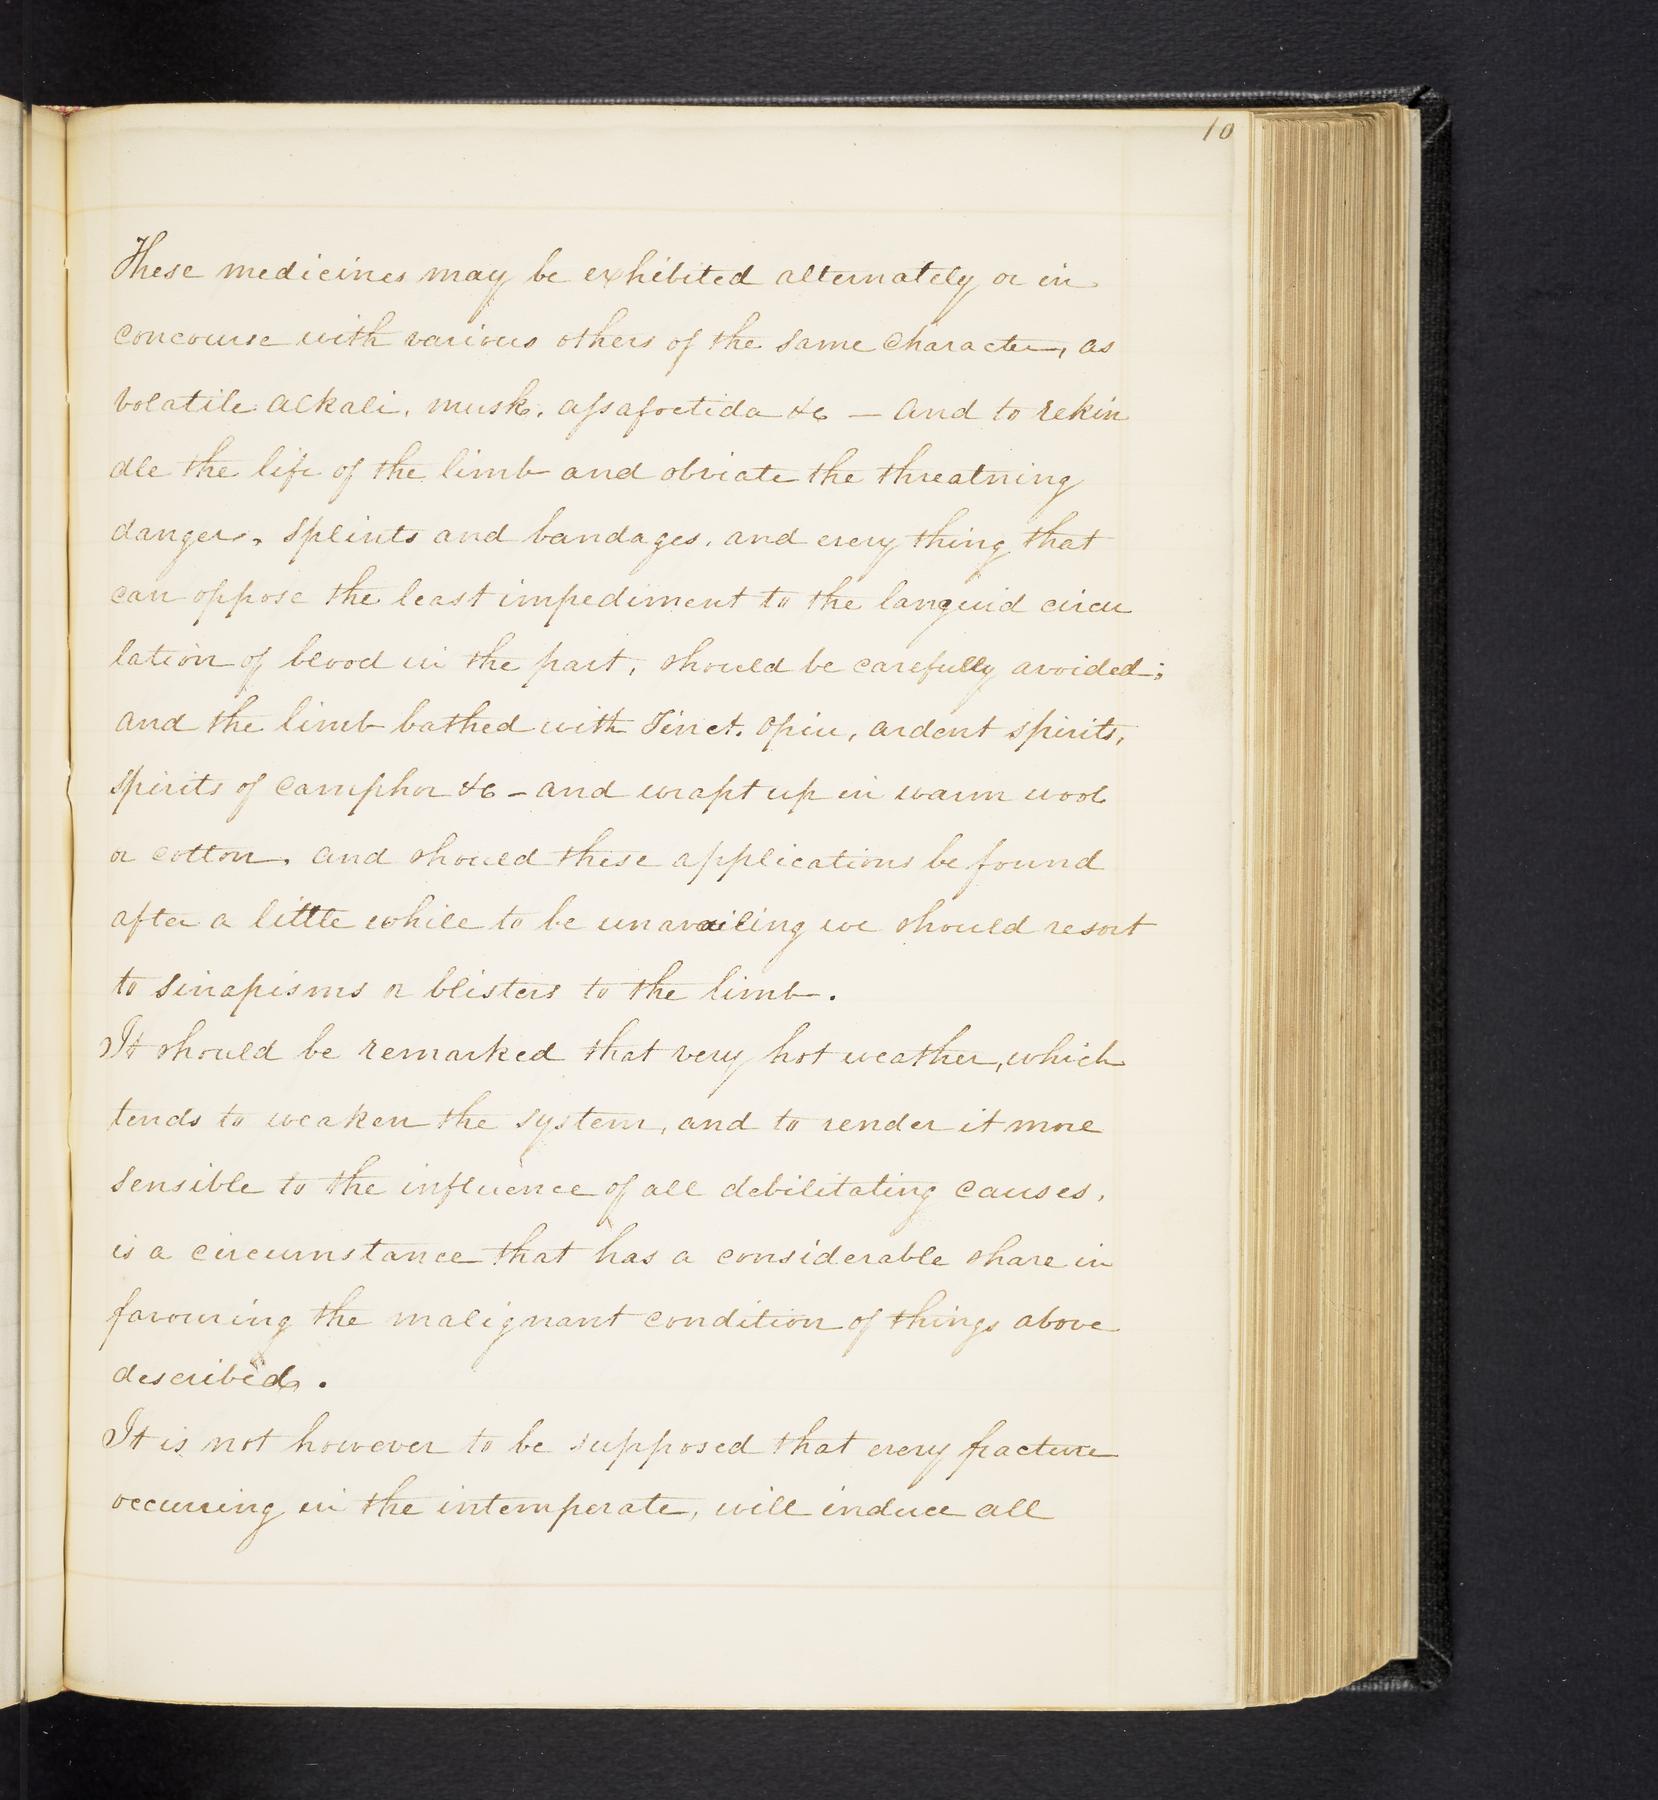 10
These medicines may be exhibited alternately or in
concourse with various others of the same character, as
volatile alkali, musk, assafoetida &c — and to rekin
dle the life of the limb and obviate the threatning
danger, splints and bandages, and every thing that
can oppose the least impediment to the languid circu
lation of blood in the part, should be carefully avoided;
and the limb bathed with Tinct. opiu, ardent spirits,
spirits of camphor &c – and wrapt up in warm wool
or cotton, and should these applications be found
after a little while to be unavailing we should resort
to sinapisms or blisters to the limb.
It should be remarked that very hot weather, which
tends to weaken the system, and to render it more
sensible to the influence of all debilitating causes,
is a circumstance that has a considerable share in
favouring the malignant condition of things above
described.
It is not however to be supposed that every fracture
occurring in the intemperate, will induce all